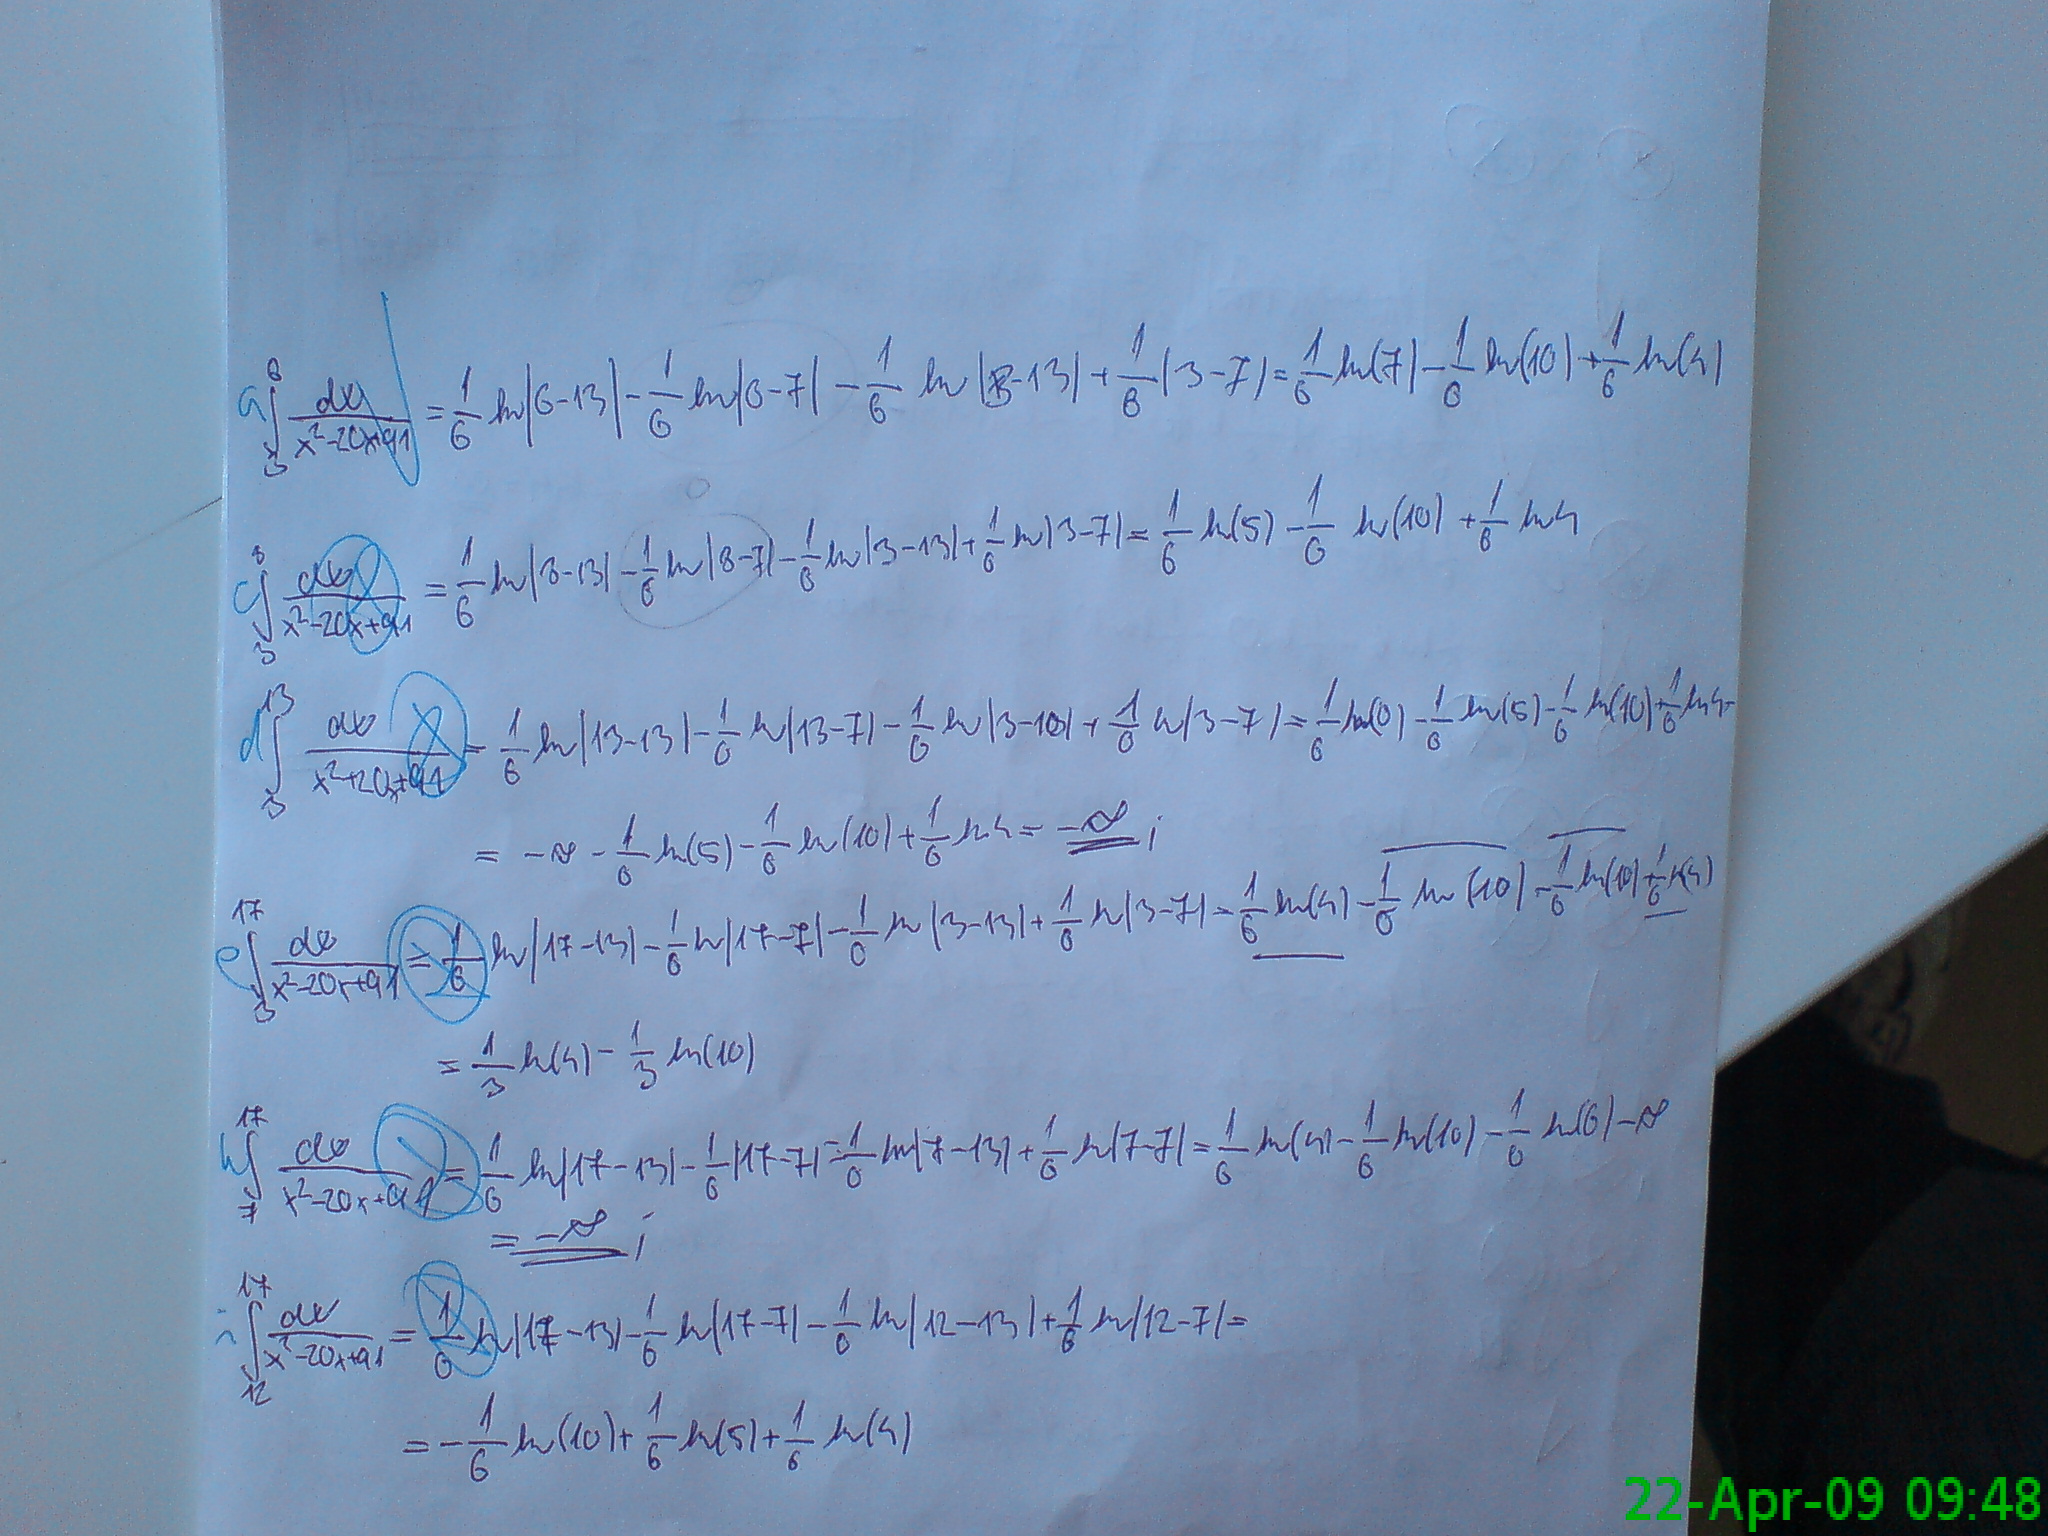 a) ∫_3^6 dx/(x²-20x+91) = 1/6 ln|6-13| - 1/6 ln|6-7| - 1/6 ln|3-13| + 1/6 |3-7| = 1/6 ln(7) - 1/6 ln(10) + 1/6 ln(4)
c) ∫_3^8 dx/(x²-20x+91) = 1/6 ln|8-13| - 1/6 ln|8-7| - 1/6 ln|3-13| + 1/6 ln|3-7| = 1/6 ln(5) - 1/6 ln(10) + 1/6 ln4
d) ∫_3^13 dx/(x²+20x+91) = 1/6 ln|13-13| - 1/6 ln|13-7| - 1/6 ln|3-10| + 1/6 ln|3-7| = 1/6 ln(0) - 1/6 ln(5) - 1/6 ln(10) + 1/6 ln4 =
= -∞ - 1/6 ln(5) - 1/6 ln(10) + 1/6 ln4 = -∞ ;
e) ∫_3^17 dx/(x²-20x+91) = 1/6 ln|17-13| - 1/6 ln|17-7| - 1/6 ln|3-13| + 1/6 ln|3-7| = 1/6 ln(4) - 1/6 ln(10) - 1/6 ln(10) + 1/6 ln(4)
= 1/3 ln(4) - 1/3 ln(10)
h) ∫_7^17 dx/(x²-20x+91) = 1/6 ln|17-13| - 1/6 |17-7| - 1/6 ln|7-13| + 1/6 ln|7-7| = 1/6 ln(4) - 1/6 ln(10) - 1/6 ln(6) - ∞
= -∞ ;
i) ∫_12^17 dx/(x²-20x+91) = 1/6 ln|17-13| - 1/6 ln|17-7| - 1/6 ln|12-13| + 1/6 ln|12-7| =
= - 1/6 ln(10) + 1/6 ln(5) + 1/6 ln(4)
22-Apr-09 09:48